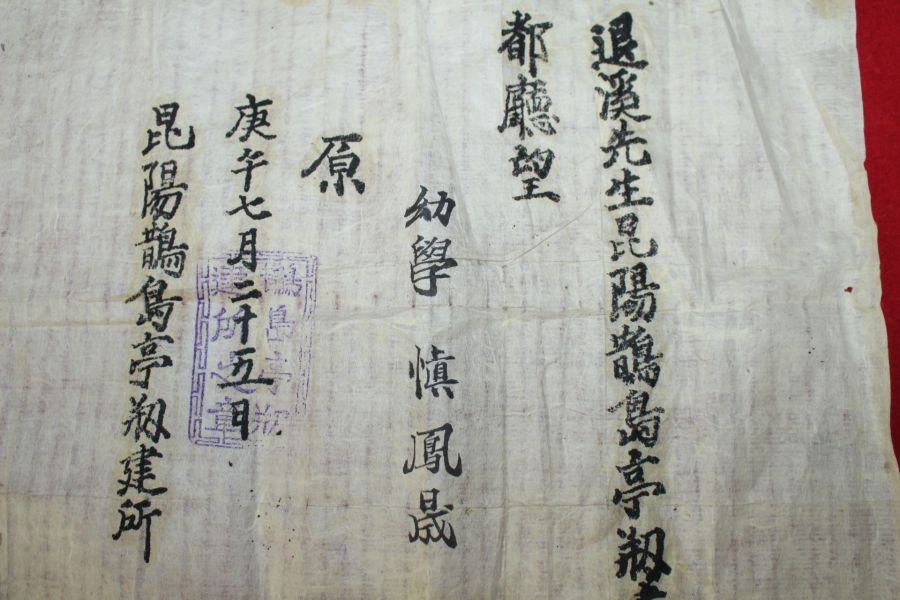 退溪先生昆陽鵲島亭刱建
都廳望
幼學 愼鳳晟
原
庚午七月二十五日
昆陽鵲島亭刱建所
鵲島亭刱
建所之章